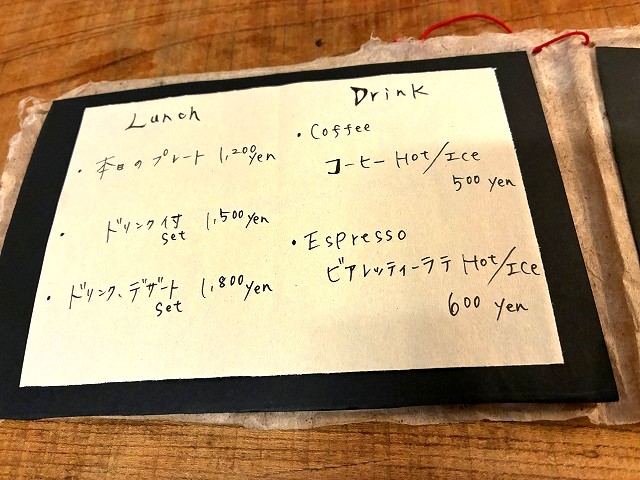 Lunch
・本日のプレート 1,200yen
・ドリンク付 1,500yen
set
・ドリンク、デザート 1,800yen
set
Drink
・Coffee
コーヒー Hot/Ice
500 yen
・Espresso
ビアレッティーラテ Hot/ICE
600 yen